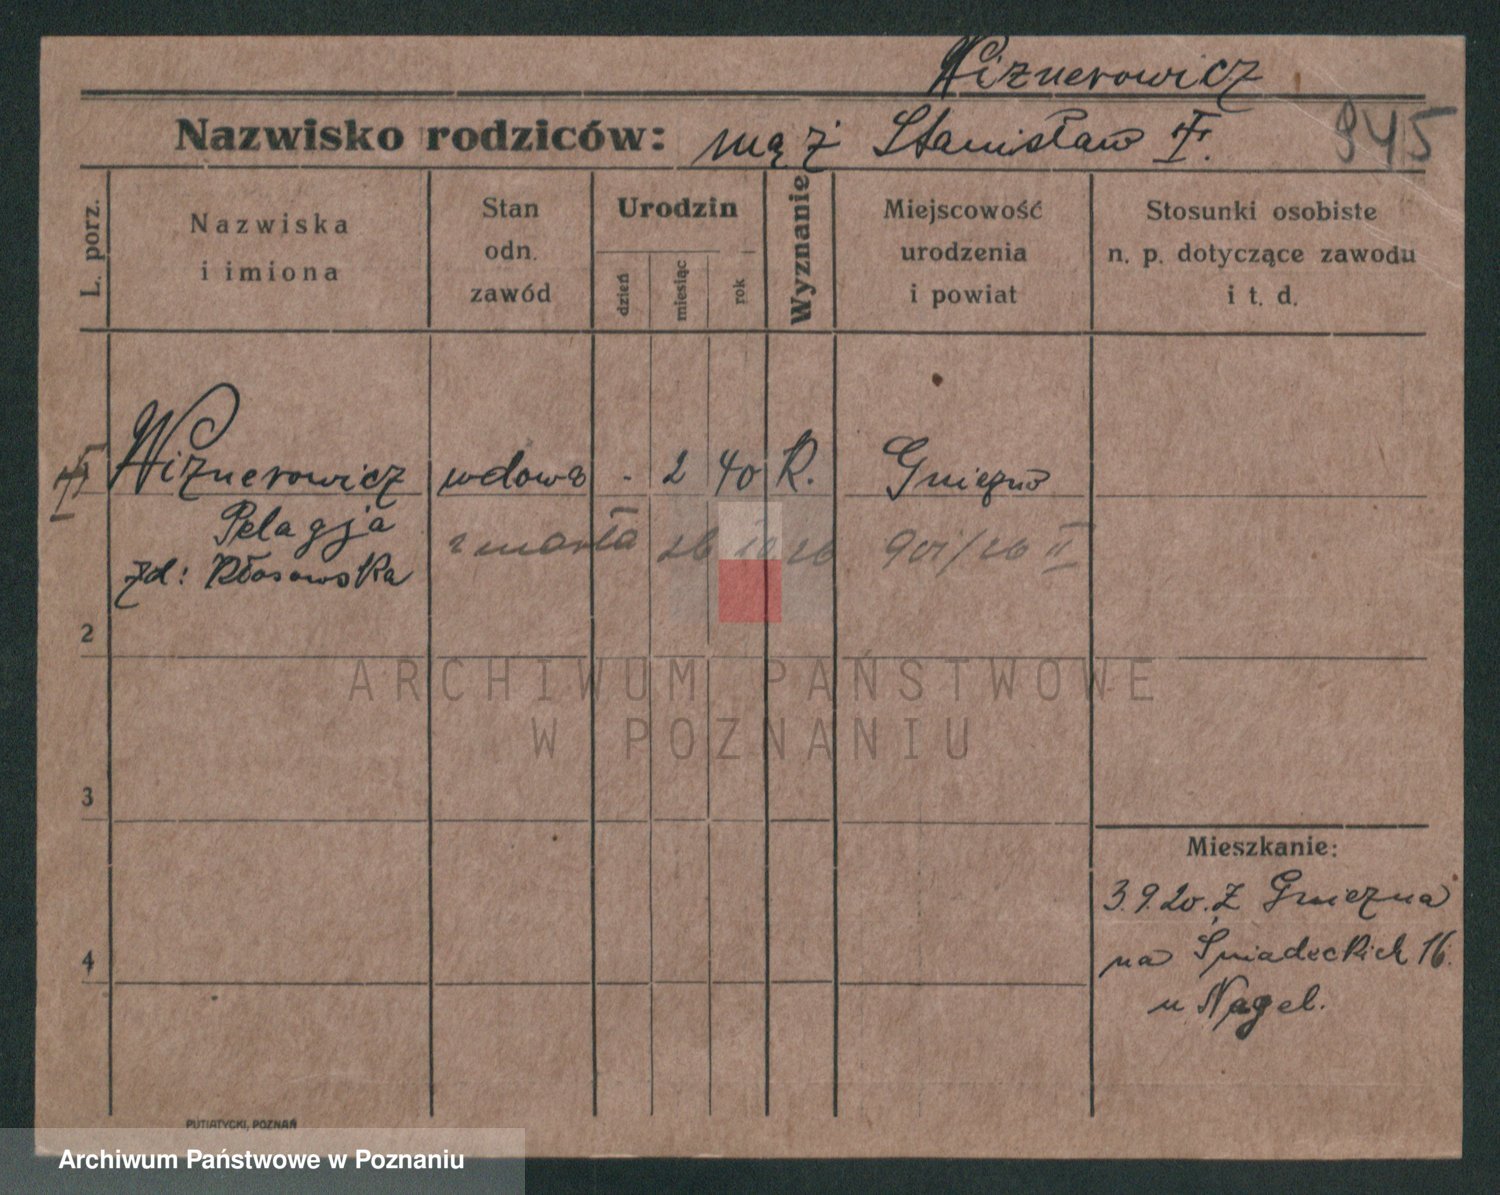 Wiznerowicz
Nazwisko rodziców: mąż Stanisław †. 945
L. porz.
Nazwiska
i imiona
Stan
odn.
zawód
Urodzin
dzień
miesiąc
rok
Wyznanie
Miejscowość
urodzenia
i powiat
Stosunki osobiste
n. p. dotyczące zawodu
i t. d.
Wiznerowicz wdowa - 2 40 R. Gniezno
Pelagja
zmarła 26 10 26 901/26 II
zd: Kłosowska
2
3
4
Mieszkanie:
3.9.20. z Gniezna
na Śniadeckich 16.
u Nagel.
PUTIATYCKI, POZNAŃ
ARCHIWUM PAŃSTWOWE
W POZNANIU
Archiwum Państwowe w Poznaniu